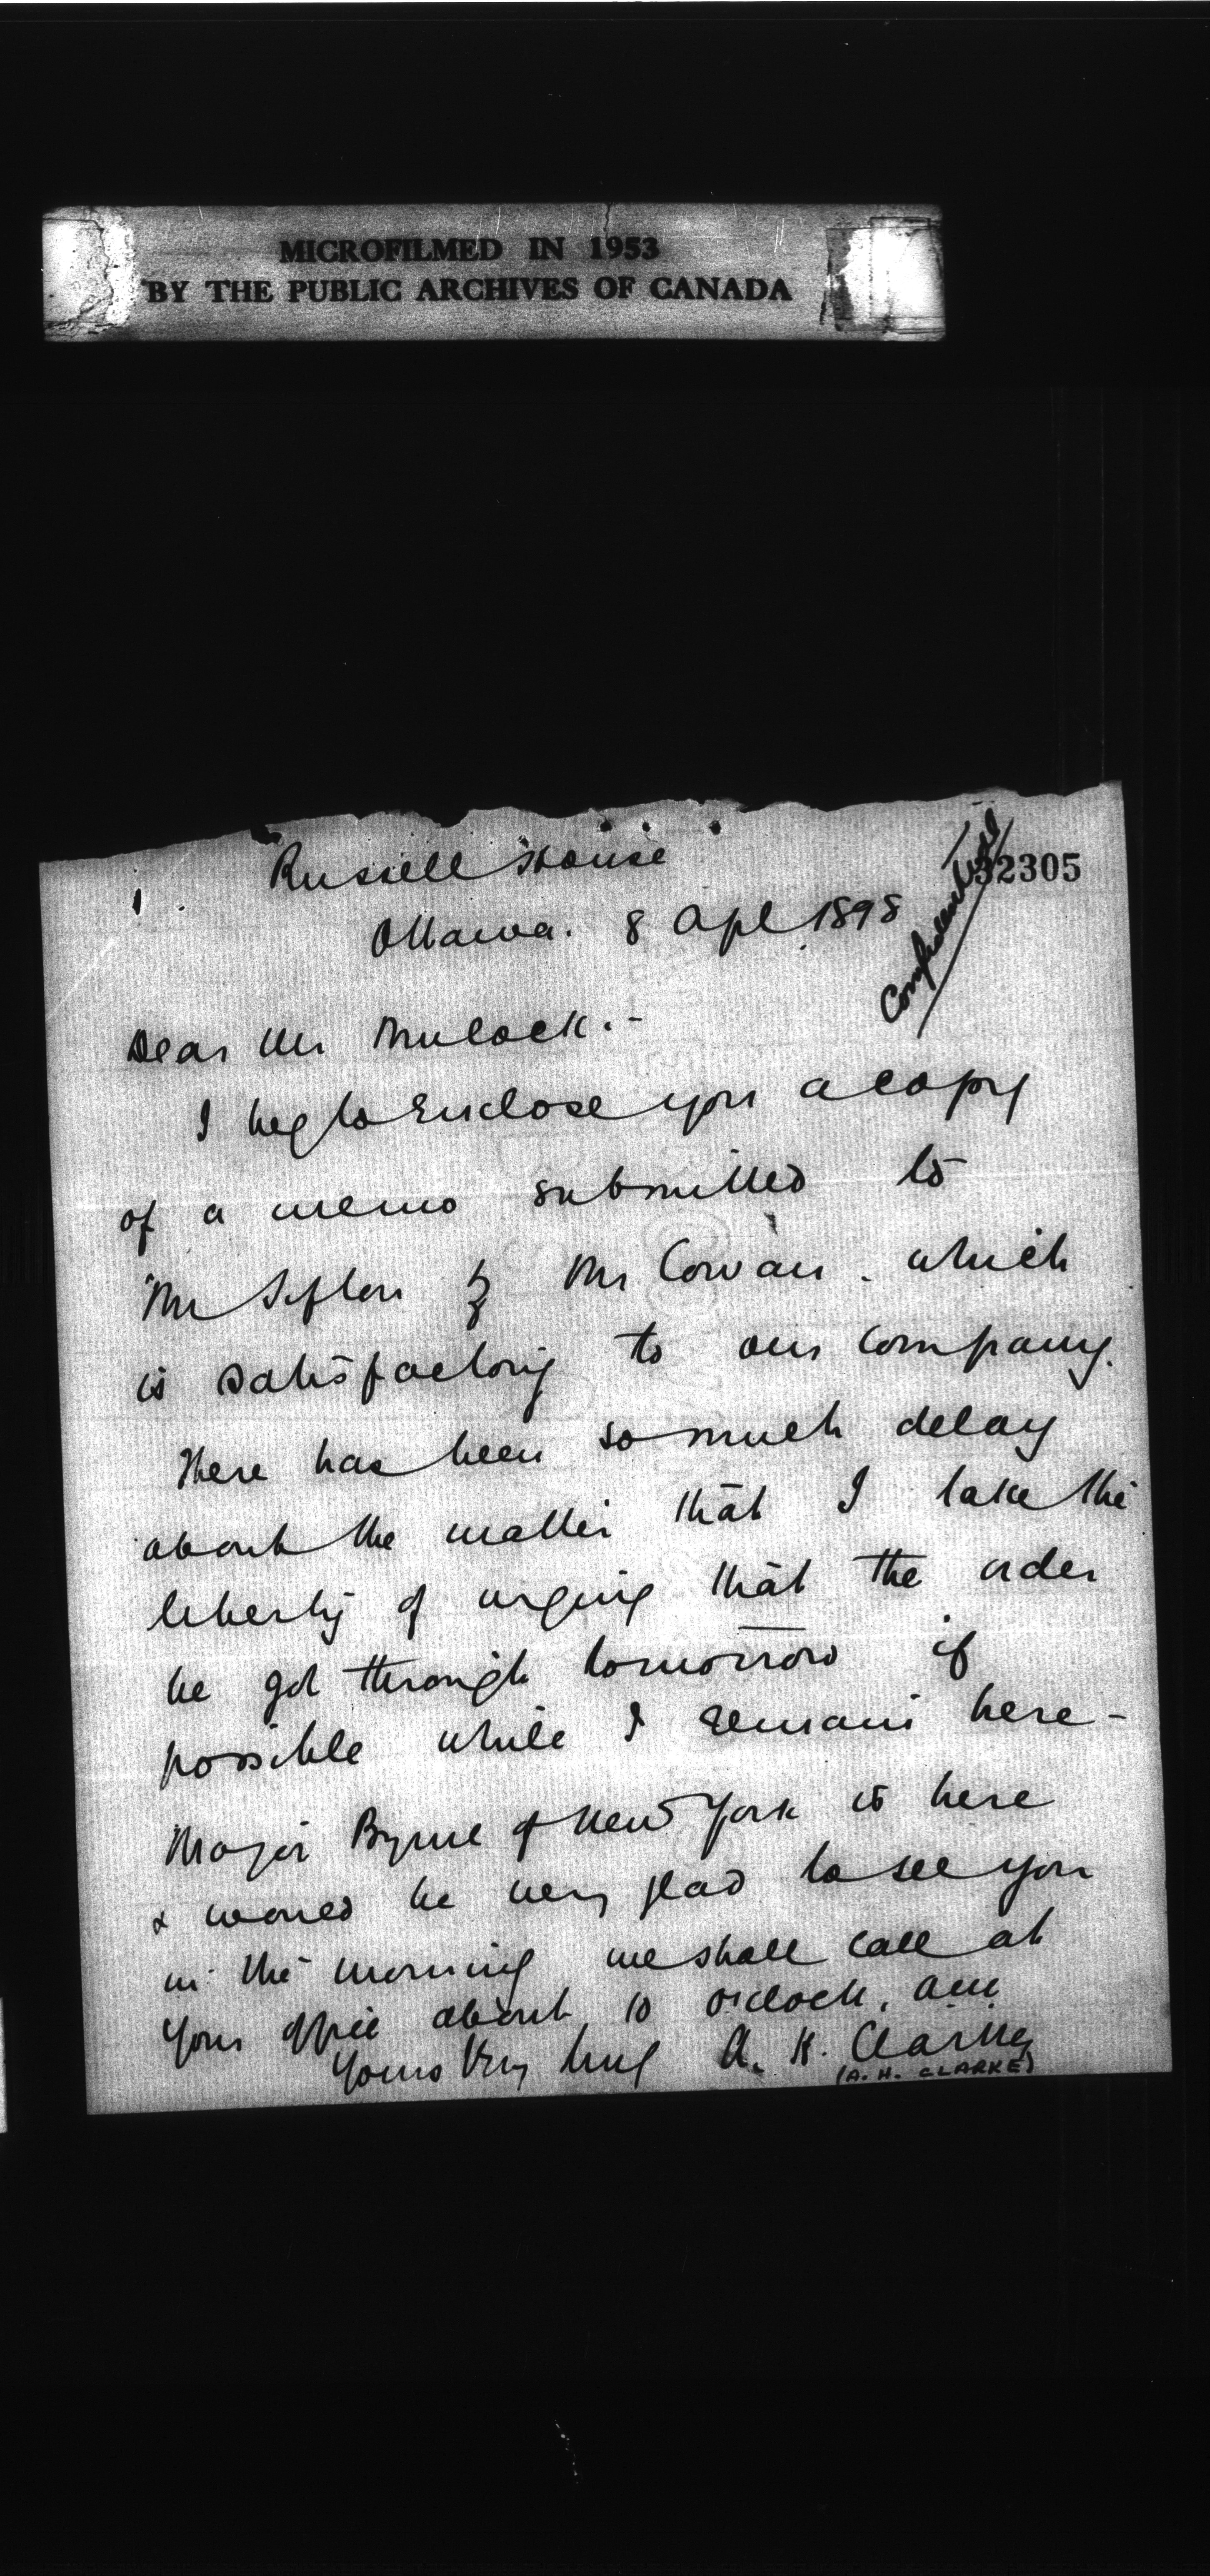 MICROFILMED IN 1953
BY THE PUBLIC ARCHIVES OF CANADA
32305
Confidential
Russell House
Ottawa. 8 Apl 1898
Dear Mr Mulock.-
I beg to Enclose you a copy
of a memo submitted to
Mr Sifton by Mr Cowan. which
is satisfactory to our company.
There has been so much delay
about the matter that I take the
liberty of urging that the order
be got through tomorrow if
possible while I remain here -
Major Byrne of New York is here
& would be very glad to see you
in the morning we shall call at
your office about 10 o'clock. am
Yours Very truly A. H. Clarke
(A. H. CLARKE)